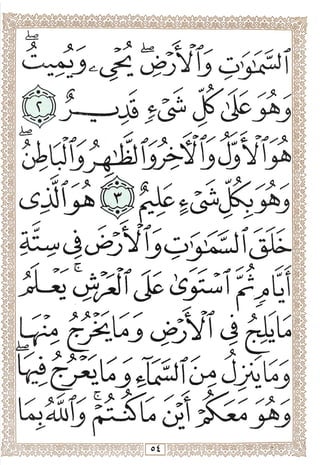 ٱلسَّمَٰوَٰتِ وَٱلۡأَرۡضِۖ يُحۡيِۦ وَيُمِيتُۖ
وَهُوَ عَلَىٰ كُلِّ شَيۡءٖ قَدِيرٌ ٢
هُوَ ٱلۡأَوَّلُ وَٱلۡأٓخِرُ وَٱلظَّٰهِرُ وَٱلۡبَاطِنُۖ
وَهُوَ بِكُلِّ شَيۡءٍ عَلِيمٌ ٣ هُوَ ٱلَّذِي
خَلَقَ ٱلسَّمَٰوَٰتِ وَٱلۡأَرۡضَ فِي سِتَّةِ
أَيَّامٖ ثُمَّ ٱسۡتَوَىٰ عَلَى ٱلۡعَرۡشِۚ يَعۡلَمُ
مَا يَلِجُ فِي ٱلۡأَرۡضِ وَمَا يَخۡرُجُ مِنۡهَا
وَمَا يَنزِلُ مِنَ ٱلسَّمَآءِ وَمَا يَعۡرُجُ فِيهَاۖ
وَهُوَ مَعَكُمۡ أَيۡنَ مَا كُنتُمۡۚ وَٱللَّهُ بِمَا
٥٤